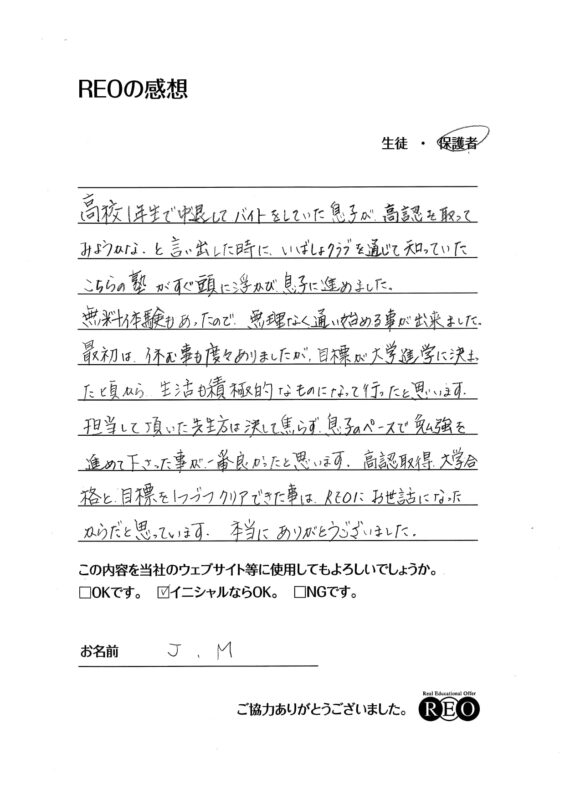 REOの感想
生徒 ・ 保護者
高校1年生で中退してバイトをしていた息子が、高認を取って
みようかな、と言い出した時に、いばしょクラブを通じて知っていた
こちらの塾がすぐ頭に浮かび息子に進めました。
無料体験もあったので、無理なく通い始める事が出来ました。
最初は、休む事も度々ありましたが、目標が大学進学に決まっ
た頃から、生活も積極的なものになって行ったと思います。
担当して頂いた先生方は決して焦らず、息子のペースで勉強を
進めて下さった事が一番良かったと思います。高認取得、大学合
格と、目標を1つづつクリアできた事は、REOにお世話になった
からだと思っています。本当にありがとうございました。
この内容を当社のウェブサイト等に使用してもよろしいでしょうか。
□OKです。 ☑イニシャルならOK。 □NGです。
お名前 J.M
Real Educational Offer
ご協力ありがとうございました。 REO